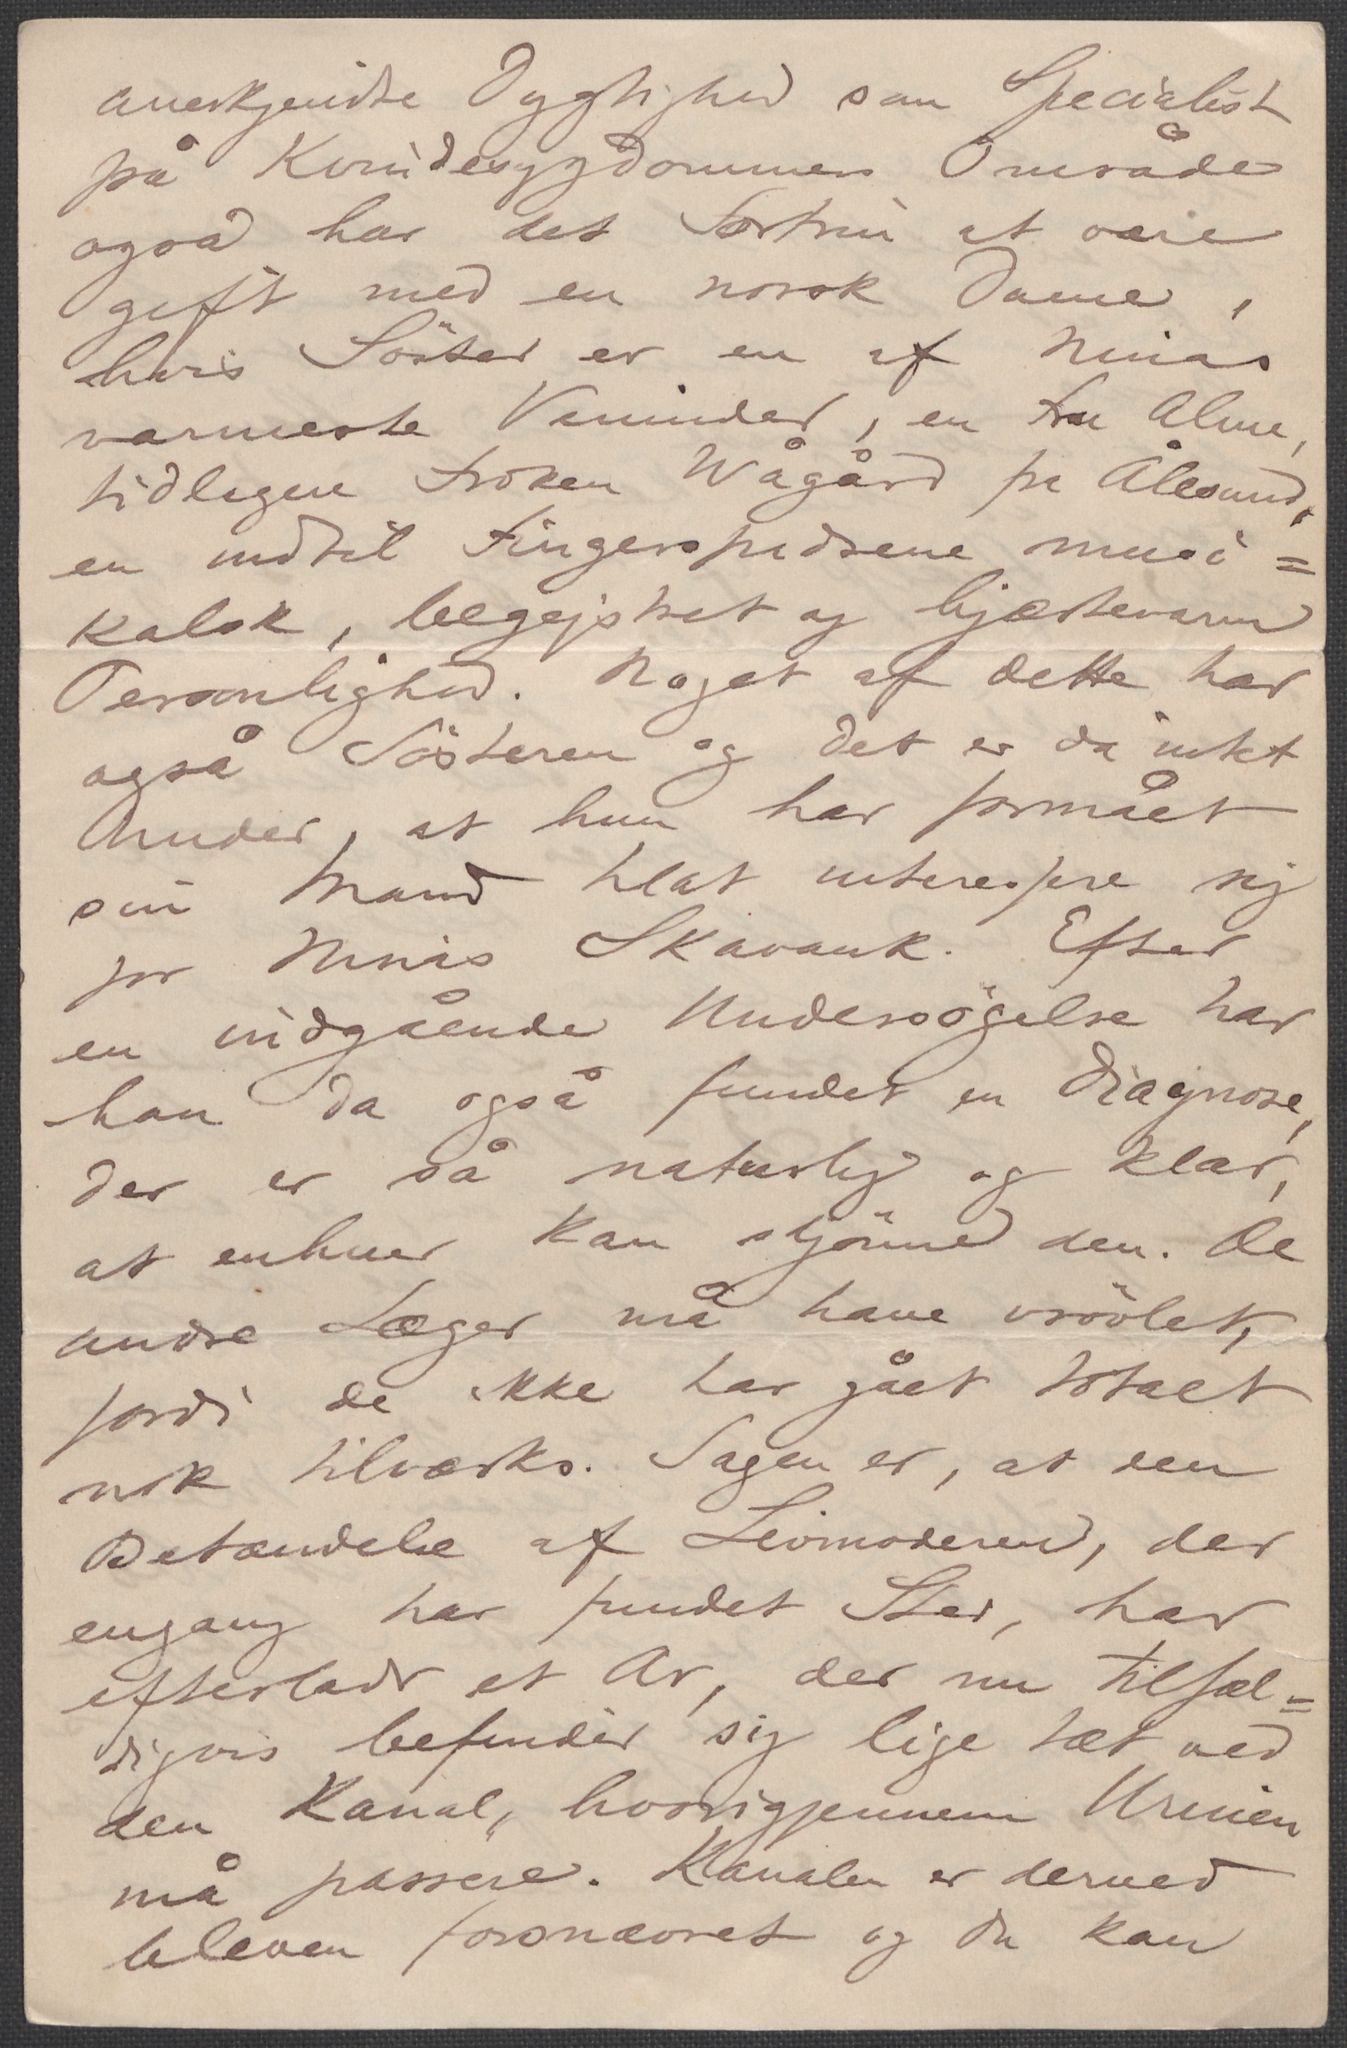 anerkjendte Dygtighed som Specialist
på Kvindesygdommers Område
også har det Fortrin at være
gift med en norsk Dame,
hvis Søster er en af Ninas
varmeste Veninder, en Fru Alme,
tidligere Frøken Wågård fra Ålesund,
en indtil Fingerspidsene musi=
kalsk, begejstret og hjertevarm
Personlighed. Noget af dette har
også Søsteren og det er da intet
Under, at hun har formået
sin Mand til at interessere sig
for Ninas Skavank. Efter
en indgående Undersögelse har
han da også fundet en Diagnose,
der er så naturlig og klar,
at enhver kan skjönne den. De
andre Læger må have vrövlet,
fordi de ikke har gået lokalt
nok tilværks. Sagen er, at den
Betændelse af Livmoderen, der
engang har fundet Sted, har
efterladt et Ar, der nu tilfæl=
digvis befinder sig lige tæt ved
den Kanal, hvorigjennem Urinen
må passere. Kanalen er derved
bleven forsnævret og du kan